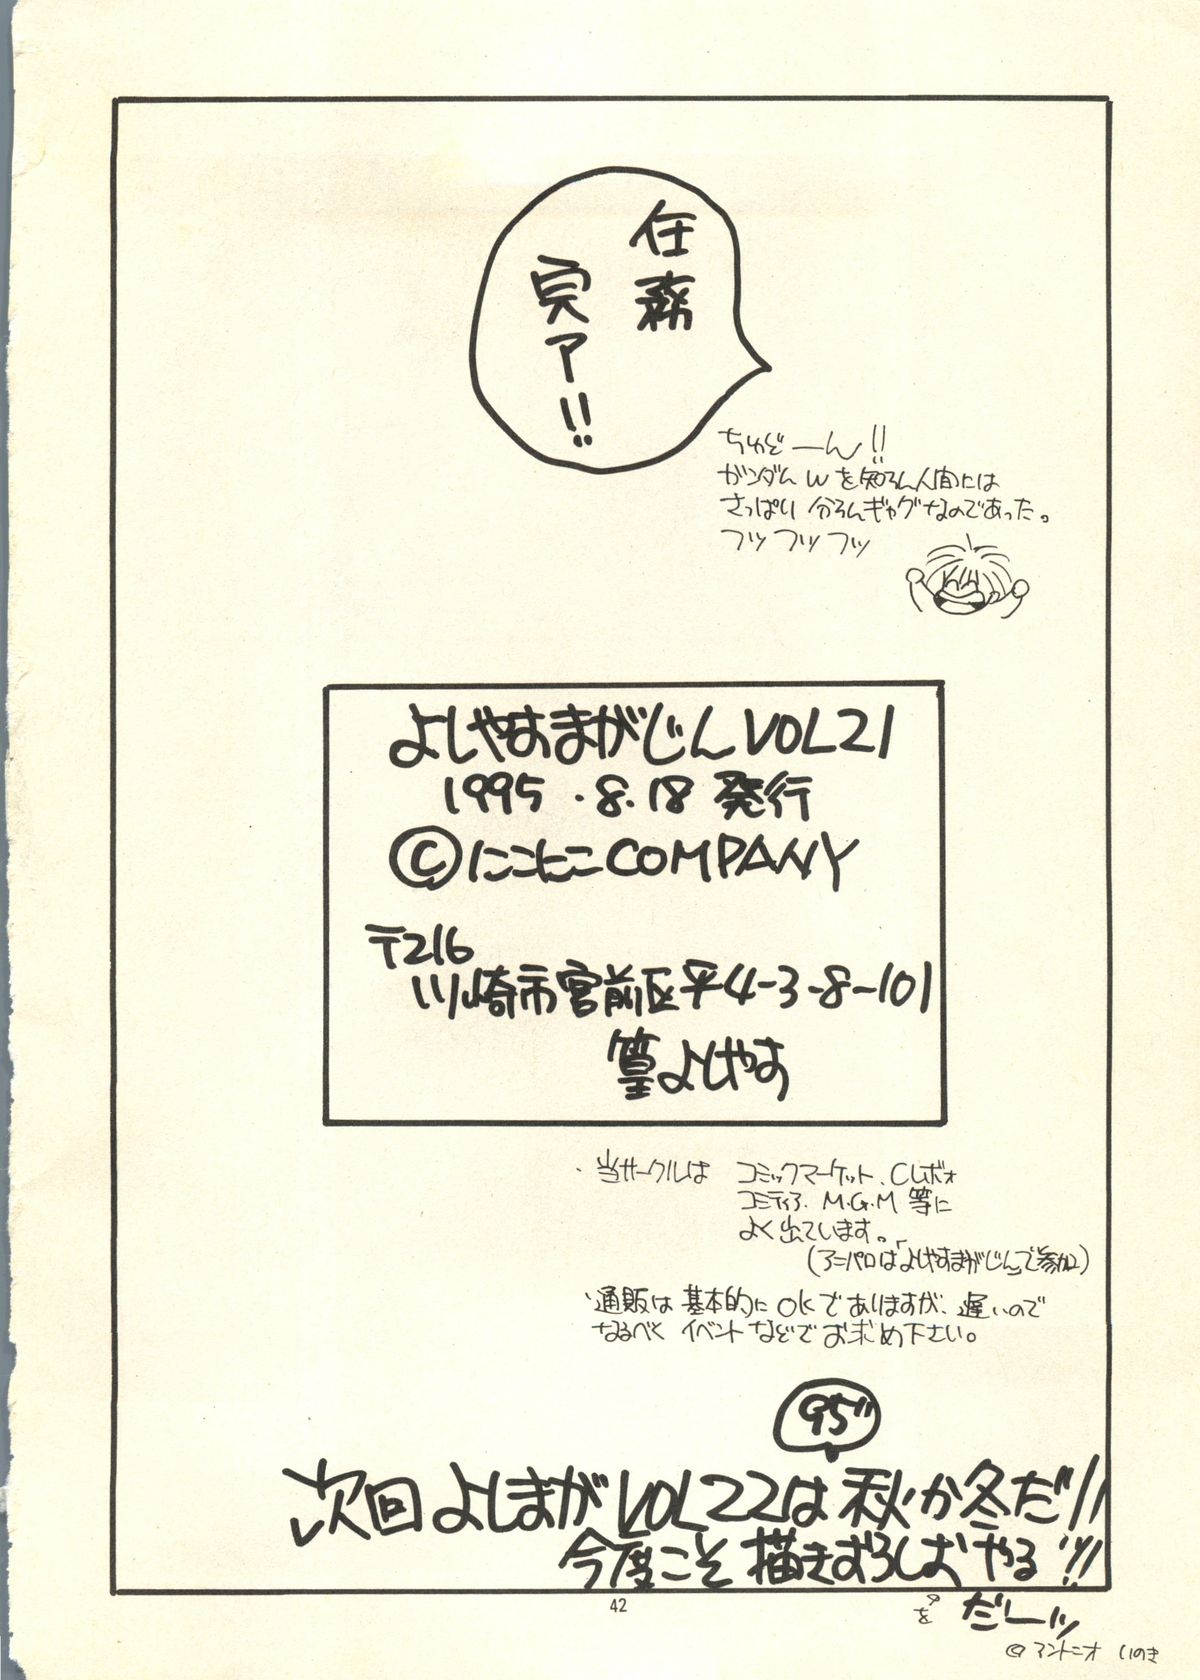 任務
完了!!
ちゅどーん!!
ガンダムWを知らん人間には
さっぱり分らんギャグなのであった。
フッフッフッ
よしやすまがじんVOL21
1995.8.18発行
©にこにこCOMPANY
〒216
川崎市宮前区平4-3-8-101
篁よしやす
・当サークルは コミックマーケット、CLボォ
コミティア、M.G.M 等に
よく出ています。
(アニパロはよしやすまがじんで参加)
・通販は基本的にOKでありますが、遅いので
なるべく イベントなどで お求め下さい。
95"
次回よしまがVOL22は秋か冬だ!!
今度こそ描きおろしおやる!!
を
だーッ
42
© アントニオ いのき